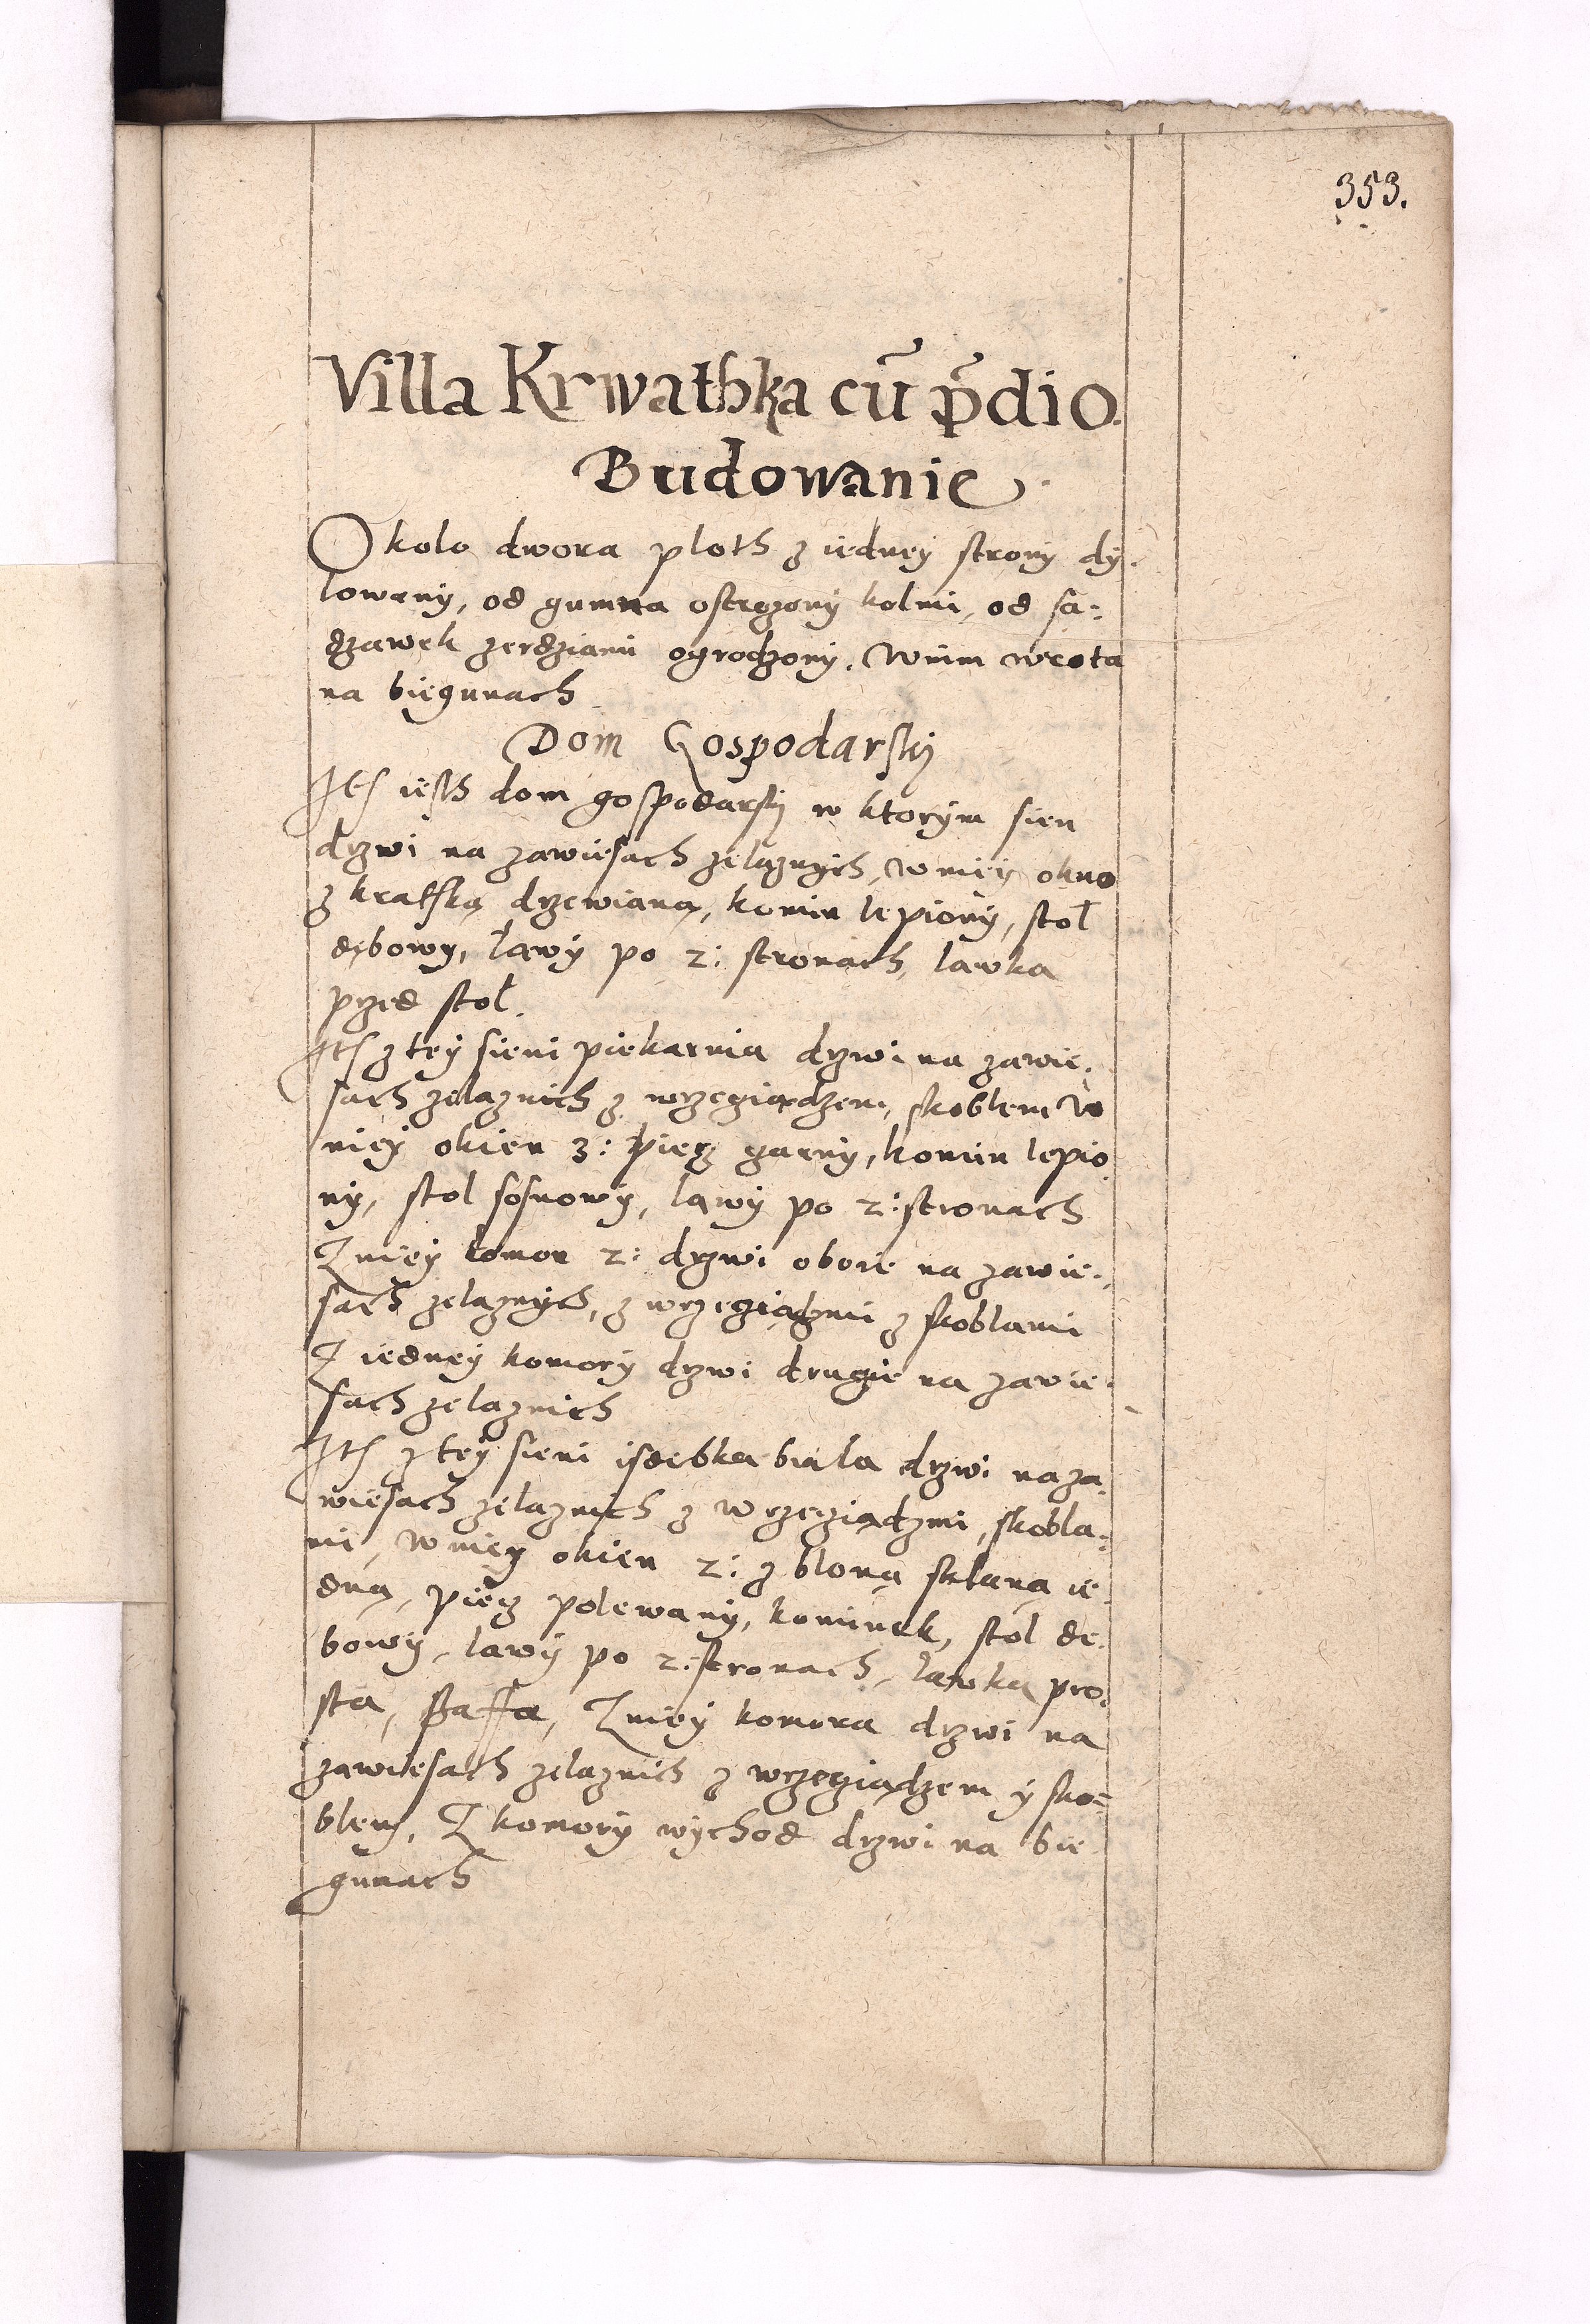 353.
Villa Krwathka cū p̄dio.
Budowanie
Okolo dwora ploth z iedney strony dy-
lowany, od gumna ostrgzony kolmi, od sa-
dzawek zerdziami ogrodzony. W nim wrota
na biegunach
Dom Gospodarsky
Ite iesth dom gospodarsky w ktorym sien
drzwi na zawiesach zelaznych, w niey okno
z kratką drzewianą, komin lepiony, stoł
dębowy, ławy po 2: stronach, lawka
przed stoł.
Ite z tey sieni piekarnia drzwi na zawie-
sach zelaznich z wrzegiądzem, skoblem W
niey okien 3: piecz garny, komin lepio
ny, stol sosnowy, lawy po 2: stronach
Z niey komor 2: drzwi oboie na zawie-
sach zelaznych, z wrzegiądzmi z skoblami
Z iedney komory drzwi drugie na zawie-
sach zelaznich
Ite z tey sieni isdebka biala drzwi na za-
wiesach zelaznich z wrzegiądzmi, skobla-
mi, w niey okien 2: z bloną sklaną ie-
dną, piecz polewany, kominek, stol de-
bowy, lawy po 2: stronach, ławka pro-
sta, szaffa, Z niey komora drzwi na
zawiesach zelaznich z wrzegiądzem y sko-
blem, Z komory wychod drzwi na bie
gunach